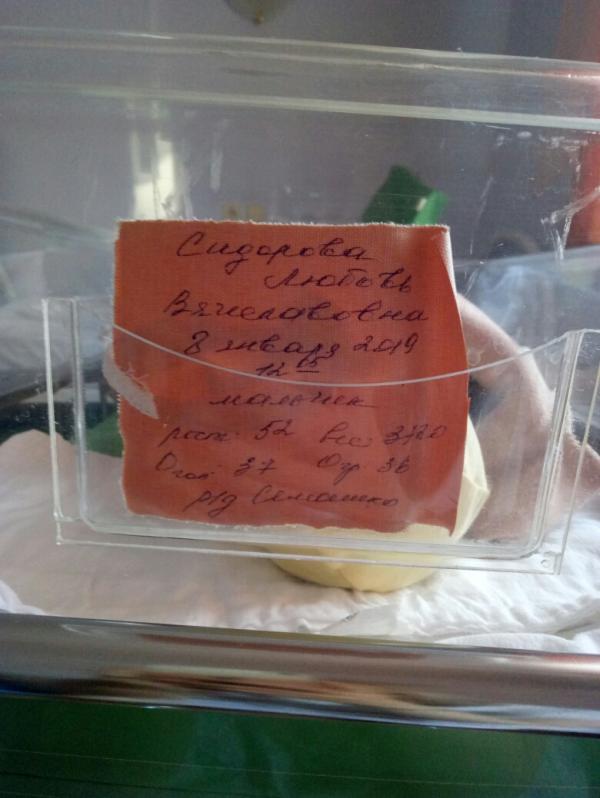 Сидорова
Любовь
Вячеславовна
8 января 2019
12 15
мальчик
рост: 52 вес: 3720
Огол: 37 Огр 36
р/д Семашко